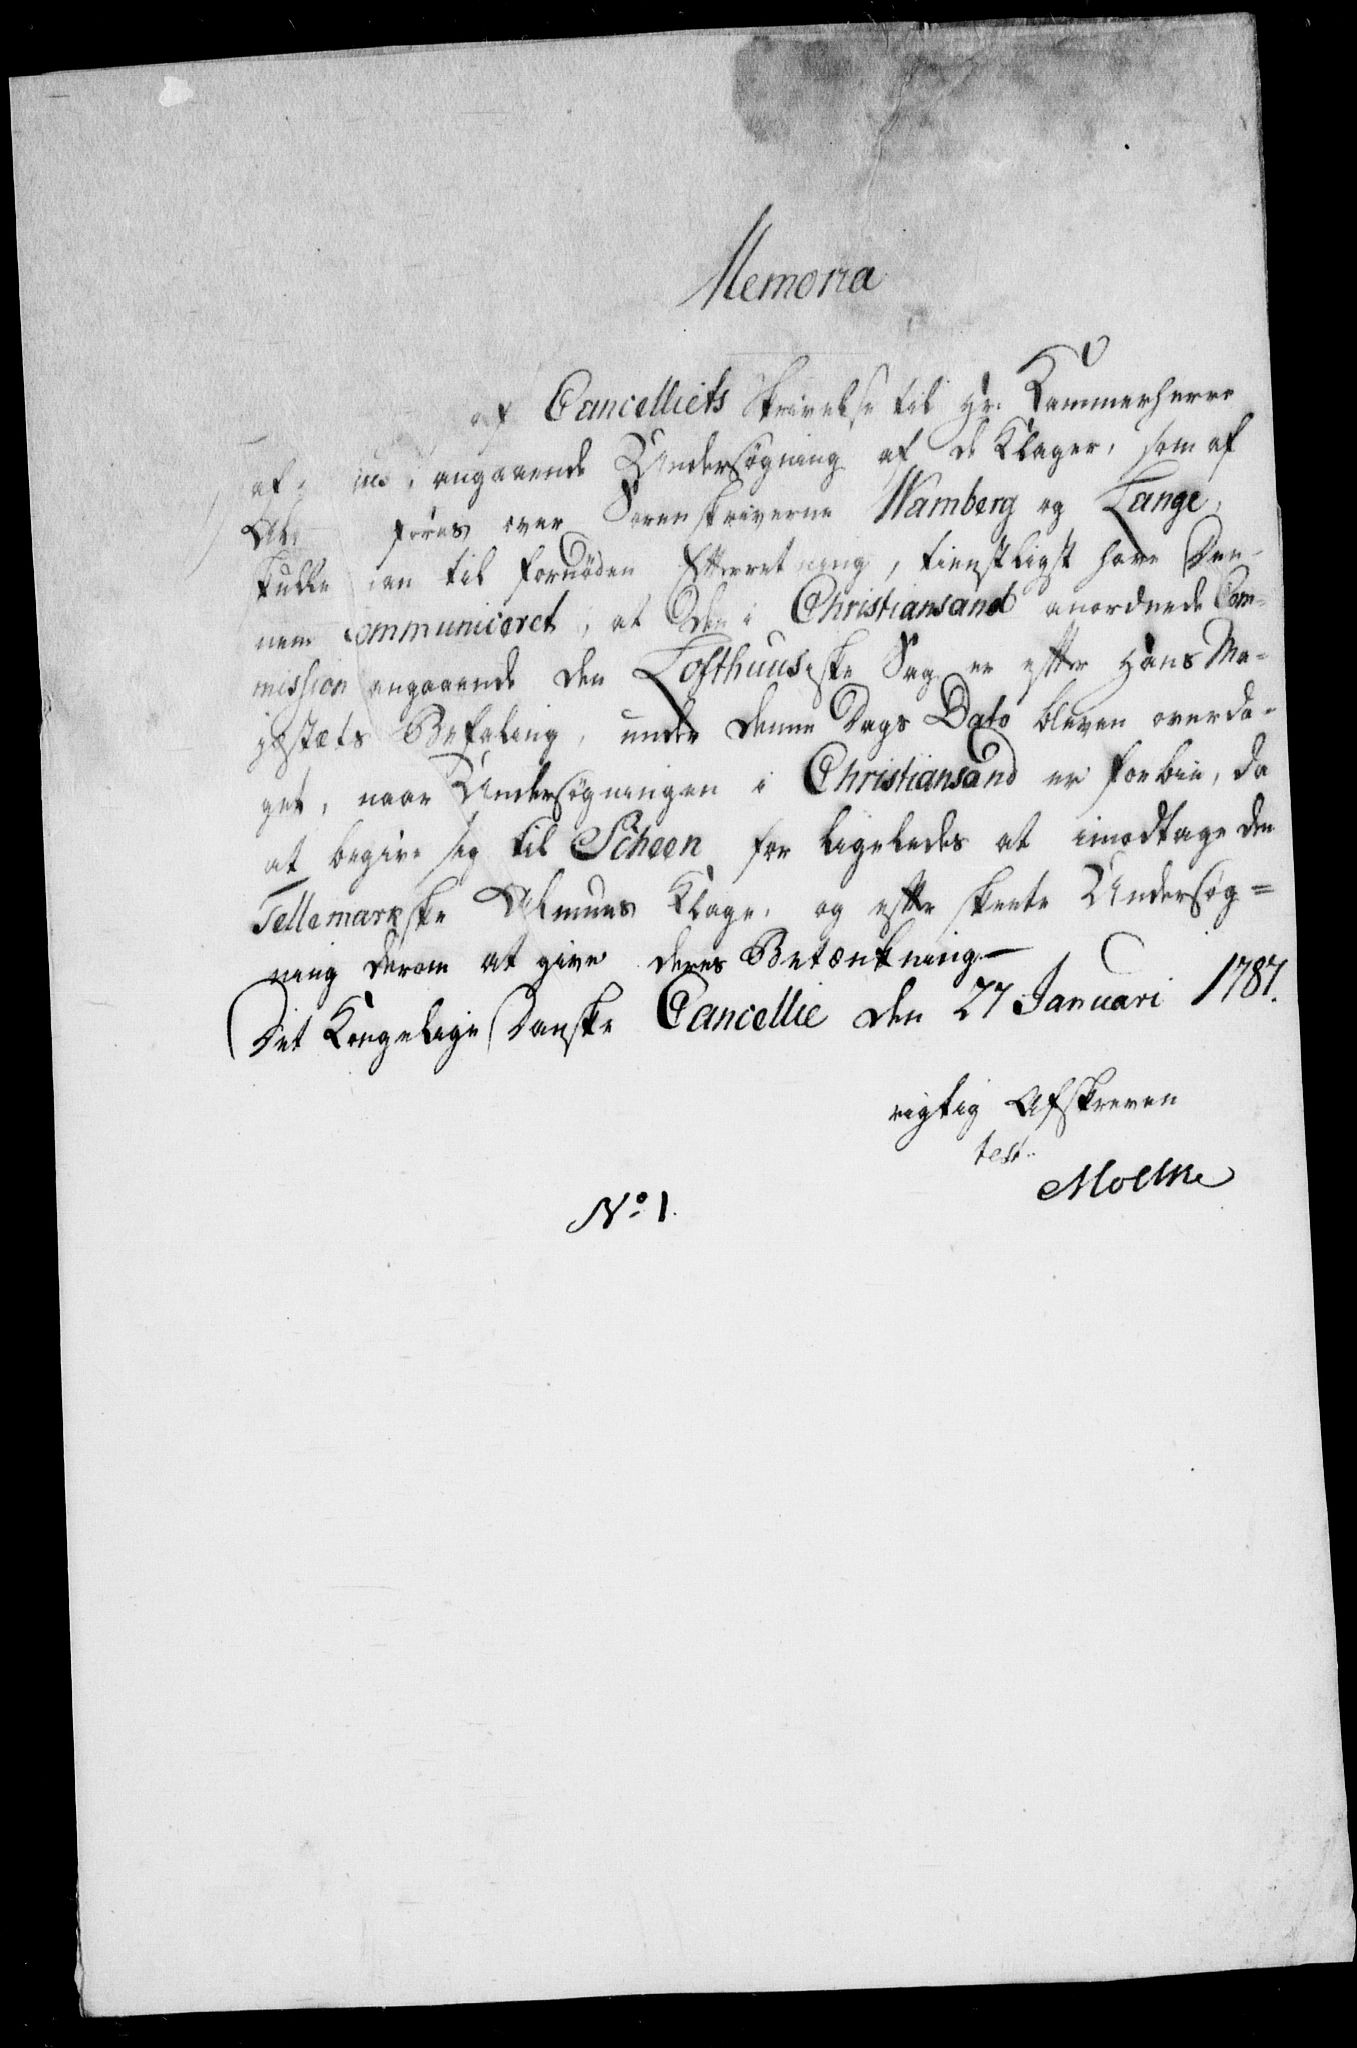 Memoria
af Cancelliets Skrivelse til Hr. Kammerherre
angaaende Undersøgning af de Klager, som af
føres over Sorenskriverne Wamberg og Lange,
skulle man til fornøden Efterretning, tienstligst have Den-
nem communiceret, at den i Christiansand anordnede Com-
mission angaaende den Lofthuusiske Sag er efter Hans Ma-
jestæts Befaling, under denne Dags Dato bleven overdra-
get, naar Undersøgningen i Christiansand er forbie, da
at begive sig til Scheen for ligeledes at imodtage den
Tellemarkske Almues Klage, og efter skeete Undersøg=
ning derom at give deres Betænkning.—
Det Kongelige Danske Cancellie den 27 Januari 1787.
rigtig Afskreven
test.
Moltke
No. 1.